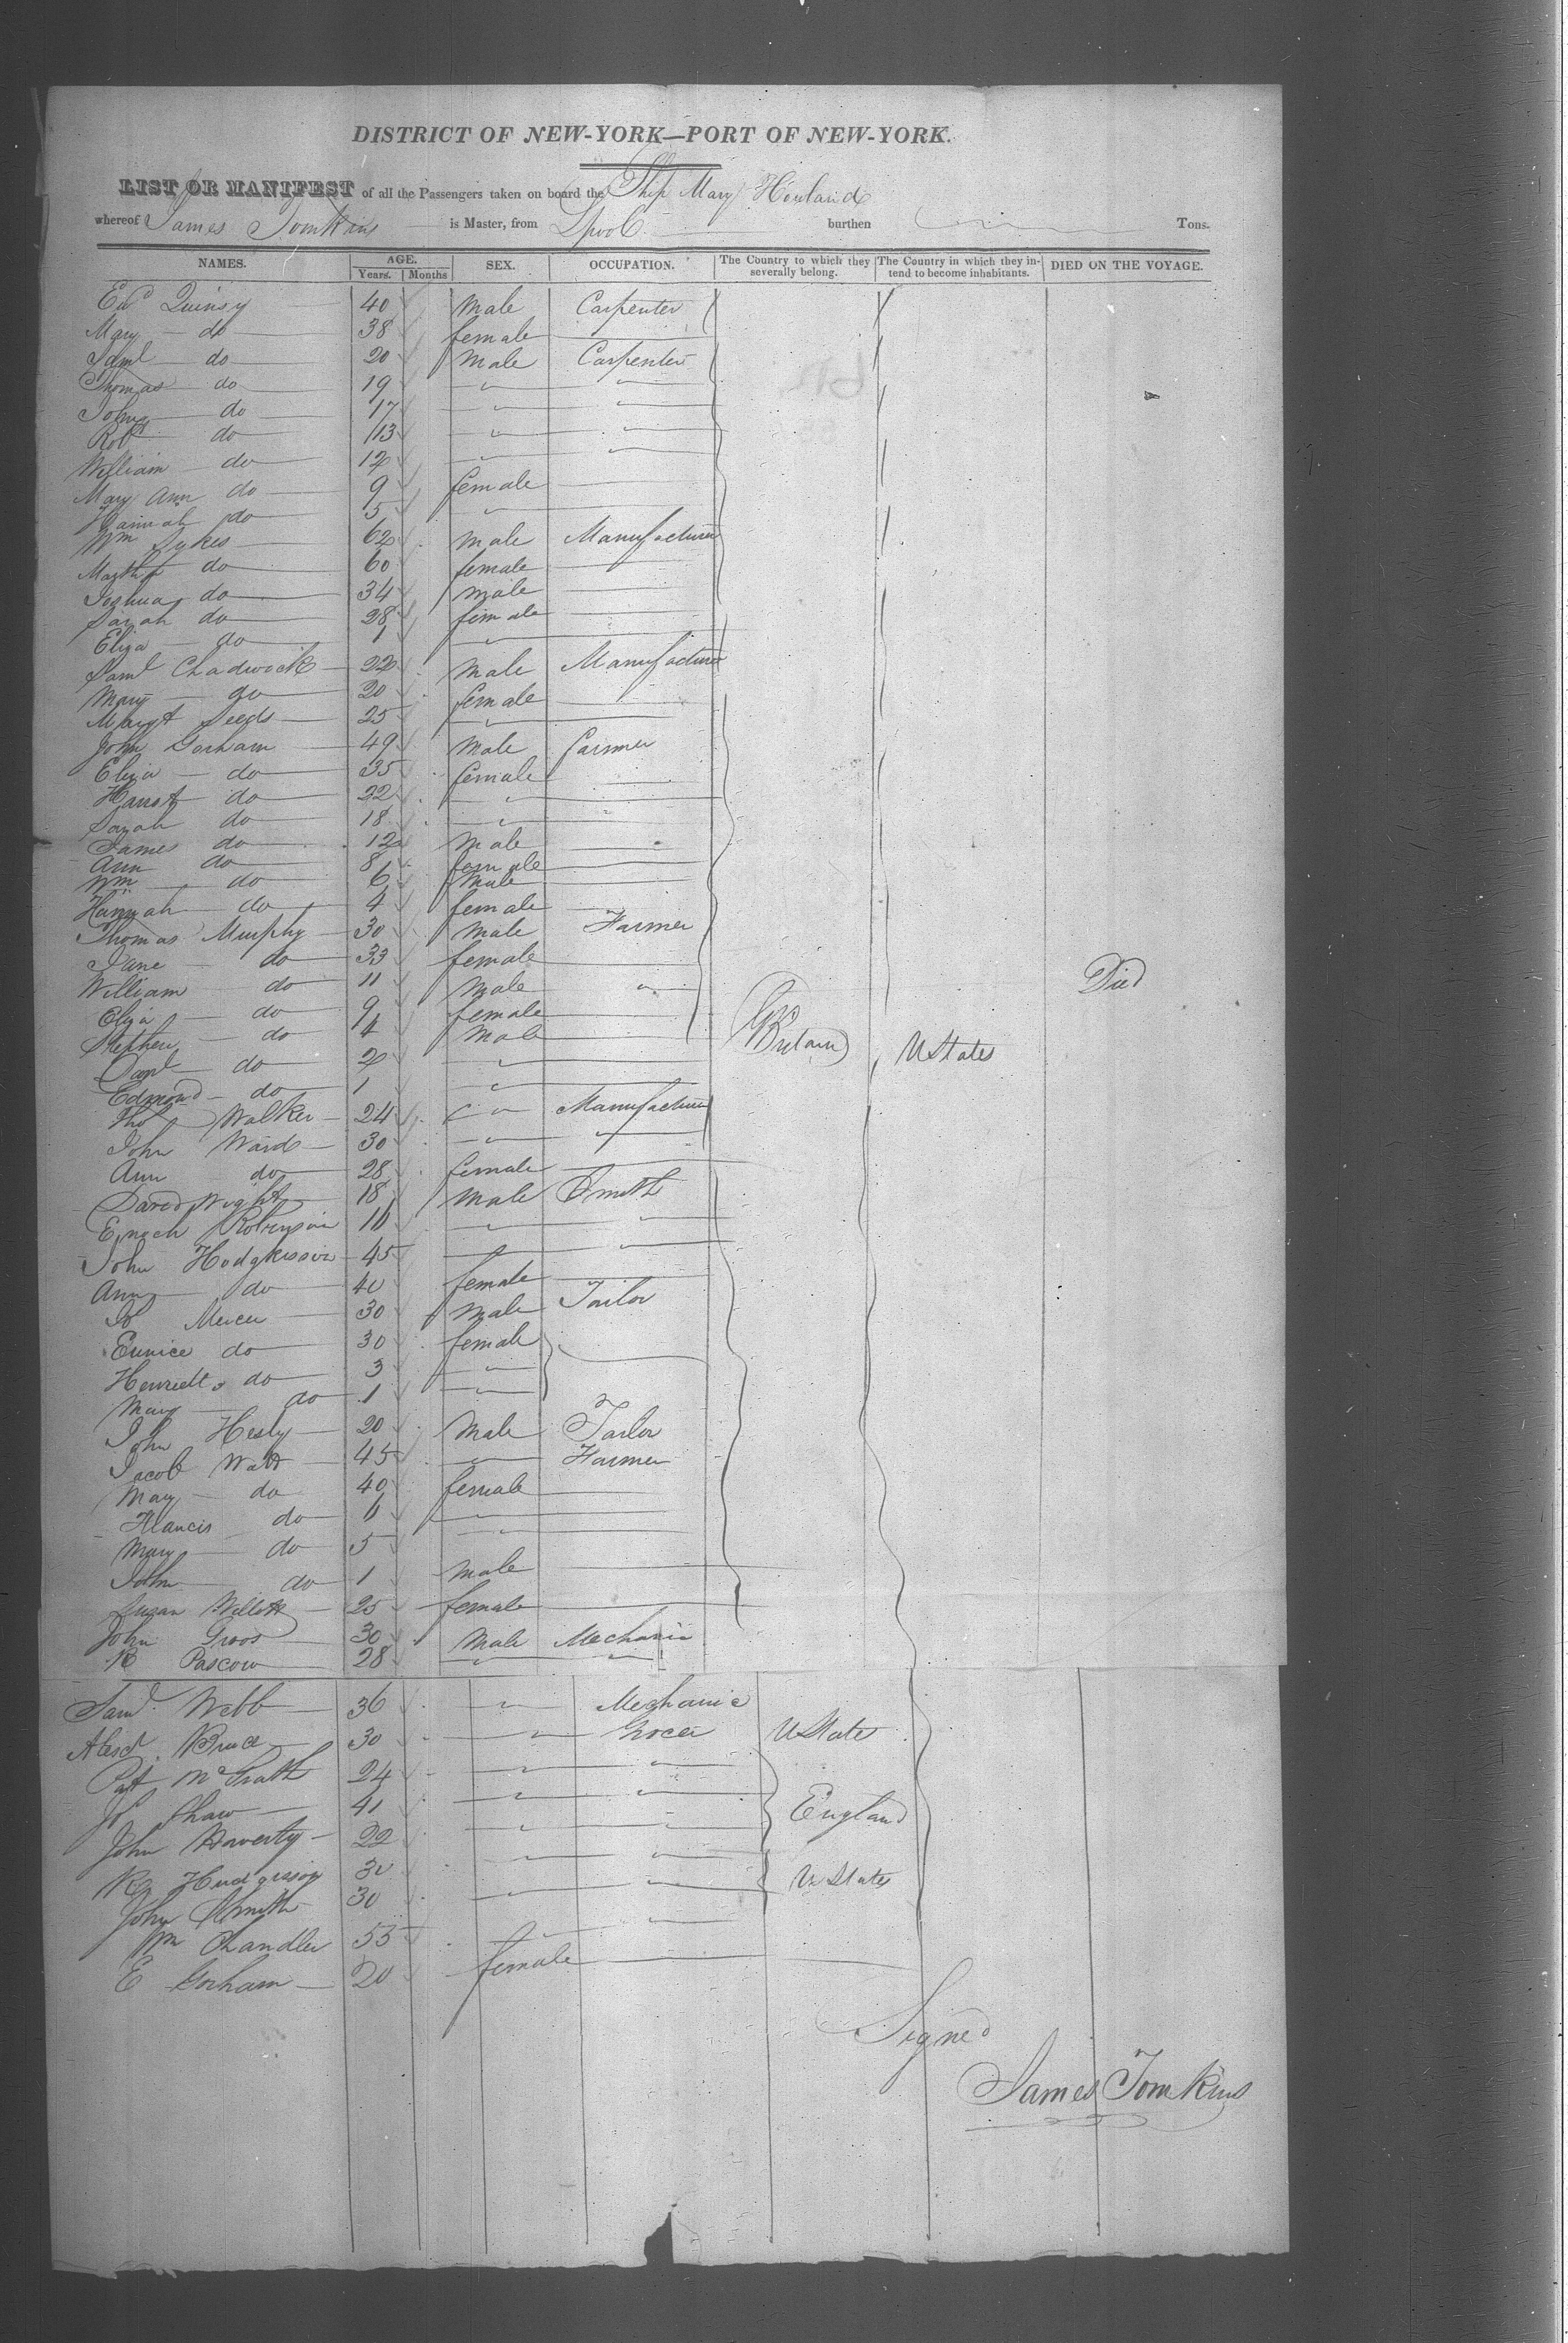 DISTRICT OF NEW-YORK—PORT OF NEW-YORK.
LIST OR MANIFEST of all the Passengers taken on board the Ship Mary Howland
whereof James Tomkins is Master, from Lpool burthen Tons.
NAMES. AGE. SEX. OCCUPATION. The Country to which they severally belong. The Country in which they intend to become inhabitants. DIED ON THE VOYAGE.
Years. Months
Edd Quinsy 40 Male Carpenter
Mary do 38 female
Saml do 20 Male Carpenter
Thomas do 19 " "
John do 17 " "
Robt do 13 " "
William do 12 " "
Mary Ann do 9 female
Hannah do 5 "
Wm Sykes 62 Male Manufacturer
Martha do 60 female
Joshua do 34 male
Sarah do 28 female
Eliza do 1 "
Saml Chadwock 22 Male Manufacturer
Mary do 20 female
Margt Leeds 25 "
John Gorham 49 Male Farmer
Eliza do 35 female
do 22 "
Sarah do 18 "
James do 12 Male
Ann do 8 female
Wm do 6 Male
Hannah do 4 female
Thomas Murphy 30 Male Farmer
Jane do 33 female
William do 11 Male " Died
Eliza do 9 female
Stephen do 4 Male Gt Britain U States
do 2 "
Edmond do 1 "
Tho Walker 24 " Manufacturer
John Ward 30 " "
Ann do 28 female
David Wight 18 Male Smith
Enoch Robinson 16 " "
John Hodgkisson 45 "
Ann do 40 female
Jo Mercer 30 Male Tailor
Eunice do 30 female
Henrietta do 3 "
Mary do 1 "
John Hesly 20 Male Tailor
Jacob Watt 45 " Farmer
Mary do 40 female
Francis do
Mary do 5 "
John do 1 Male
Susan Willett 25 female
John Groos 30 Male Mechanic
Pascow 28 " "
Saml Webb 36 " Mechanic
Alexd Bruce 30 " Grocer U State
Pat McGrath 24 " "
Jo Shaw 41 " " England
John Haverty 22 " "
Hudgisson 30 " " U States
John Smith 30 " "
Wm Chandler 55 " "
E Gorham 20 female
Signed
James Tomkins